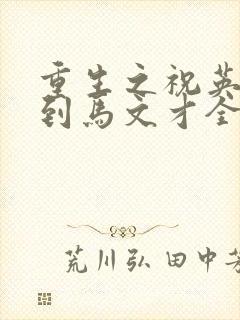 重生之祝英
到馬文才全
荒川弘 田中芳